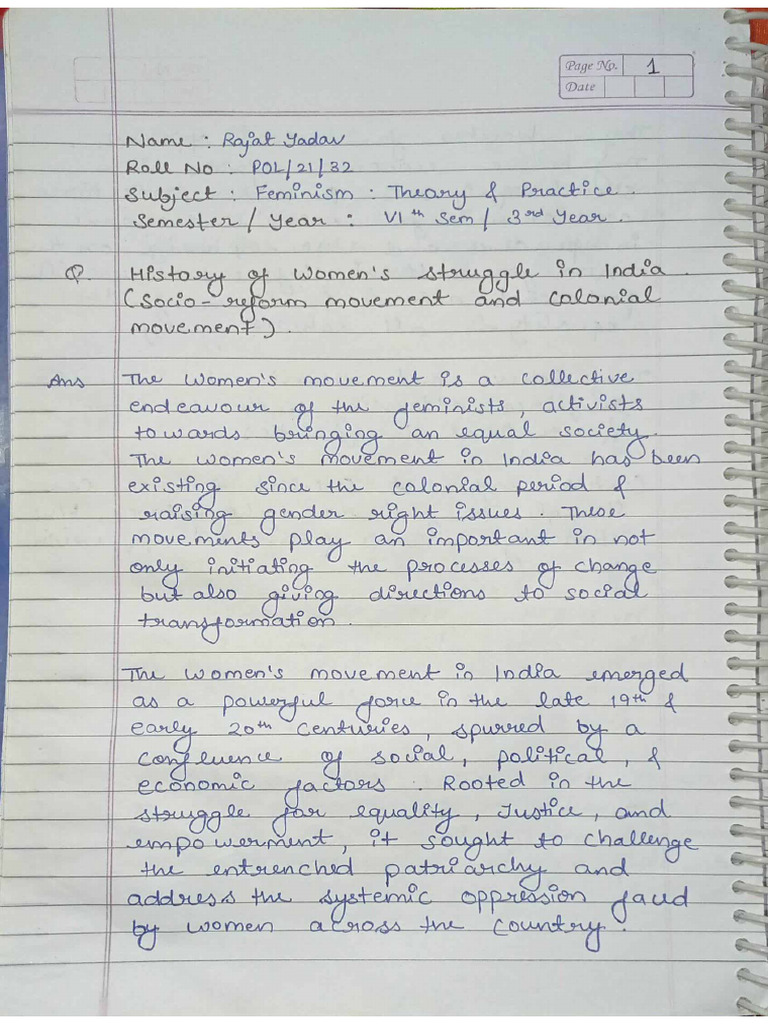 Page No. 1
Date
Name : Rajat Yadav
Roll No : POL/21/32
Subject : Feminism : Theory & Practice.
Semester / Year : VIth Sem / 3rd Year.
Q. History of Women's struggle in India.
(Socio-reform movement and colonial
movement).
Ans The Women's movement is a collective
endeavour of the feminists, activists
towards bringing an equal society.
The Women's movement in India has been
existing since the colonial period &
raising gender right issues. These
movements play an important in not
only initiating the processes of change
but also giving directions to social
transformation.
The Women's movement in India emerged
as a powerful force in the late 19th &
early 20th Centuries, spurred by a
confluence of social, political, &
economic factors. Rooted in the
struggle for equality, Justice, and
empowerment, it sought to challenge
the entrenched patriarchy and
address the systemic oppression faced
by women across the country.